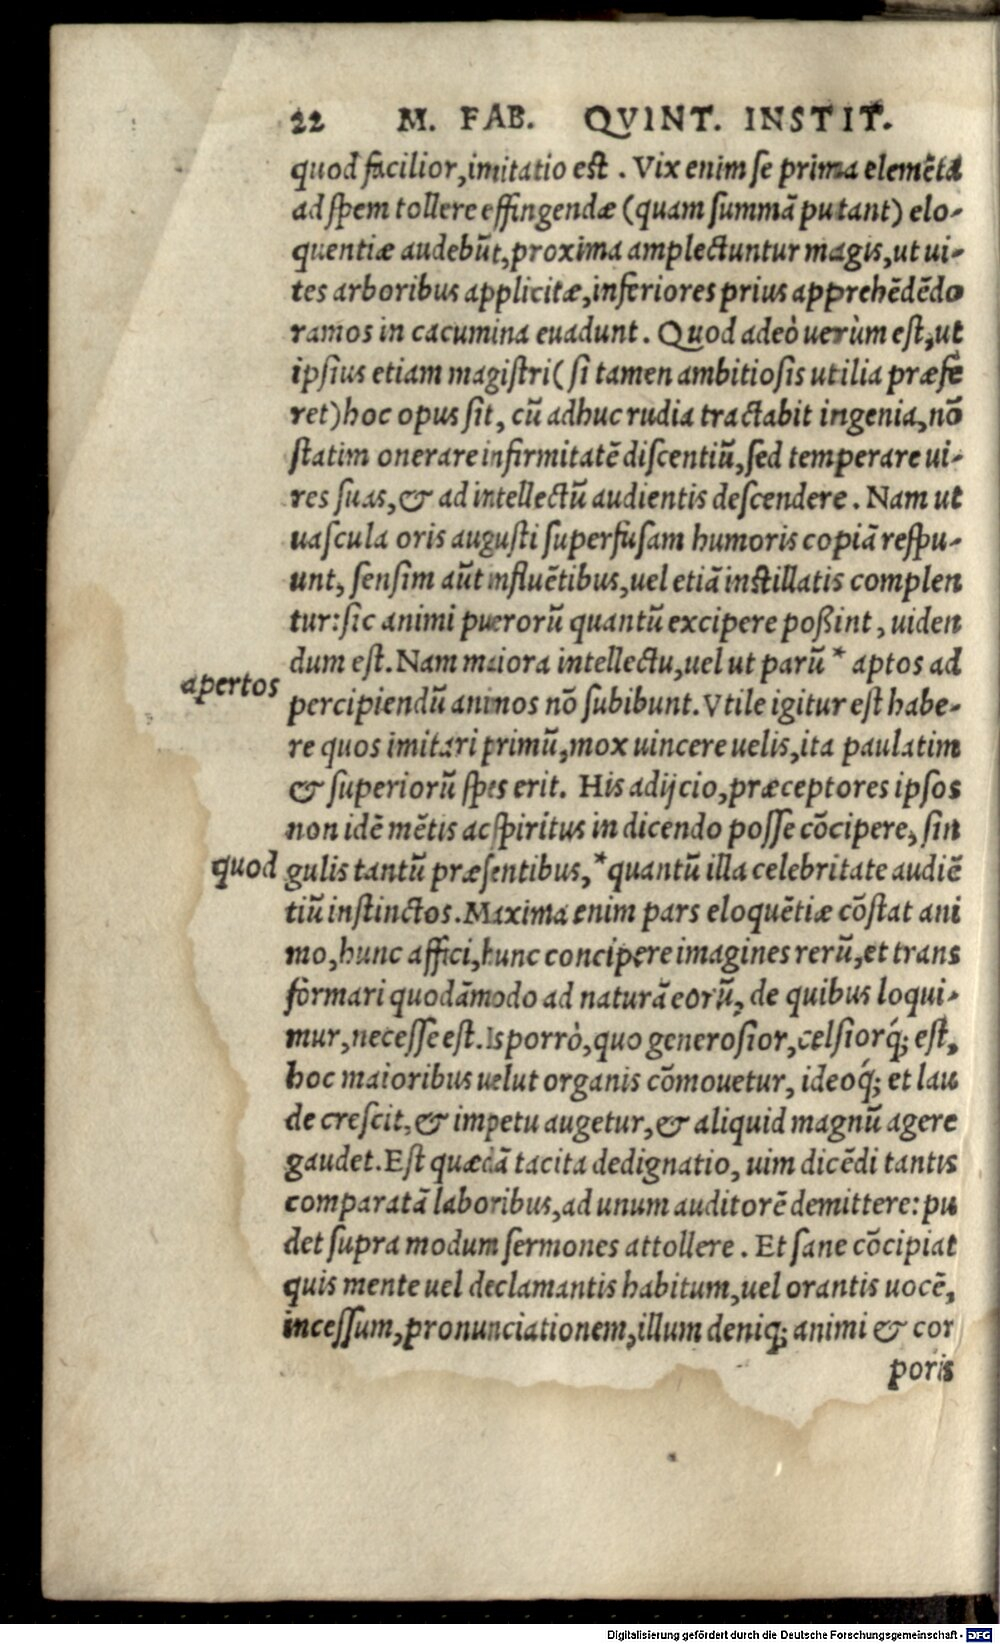 22 M. FAB. QVINT. INSTIT.
quod facilior, imitatio est . Vix enim se prima elemẽta
ad spem tollere effingendæ (quam summã putant) elo-
quentiæ audebũt, proxima amplectuntur magis, ut ui-
tes arboribus applicitæ, inferiores prius apprehẽdẽdo
ramos in cacumina euadunt . Quod adeò uerùm est, ut
ipsius etiam magistri ( si tamen ambitiosis utilia præfe
ret) hoc opus sit, cũ adhuc rudia tractabit ingenia, nõ
statim onerare infirmitatẽ discentiũ, sed temperare ui-
res suas, & ad intellectũ audientis descendere . Nam ut
uascula oris augusti superfusam humoris copiã respu-
unt, sensim aũt influẽtibus, uel etiã instillatis complen
tur: sic animi puerorũ quantũ excipere poßint, uiden
dum est. Nam maiora intellectu, uel ut parũ * aptos ad
apertos
percipiendũ animos nõ subibunt. Vtile igitur est habe-
re quos imitari primũ, mox uincere uelis, ita paulatim
& superiorũ spes erit. His adijcio, præceptores ipsos
non idẽ mẽtis ac spiritus in dicendo posse cõcipere, sin
quod gulis tantũ præsentibus, * quantũ illa celebritate audiẽ
tiũ instinctos. Maxima enim pars eloquẽtiæ cõstat ani
mo, hunc affici, hunc concipere imagines rerũ, et trans
formari quodãmodo ad naturã eorũ, de quibus loqui-
mur, necesse est. Is porrò, quo generosior, celsiorq́; est,
hoc maioribus uelut organis cõmouetur, ideoq́; et lau
de crescit, & impetu augetur, & aliquid magnũ agere
gaudet. Est quædã tacita dedignatio, uim dicẽdi tantis
comparatã laboribus, ad unum auditorẽ demittere: pu
det supra modum sermones attollere . Et sane cõcipiat
quis mente uel declamantis habitum, uel orantis uocẽ,
incessum, pronunciationem, illum deniq; animi & cor
poris
Digitalisierung gefördert durch die Deutsche Forschungsgemeinschaft - DFG